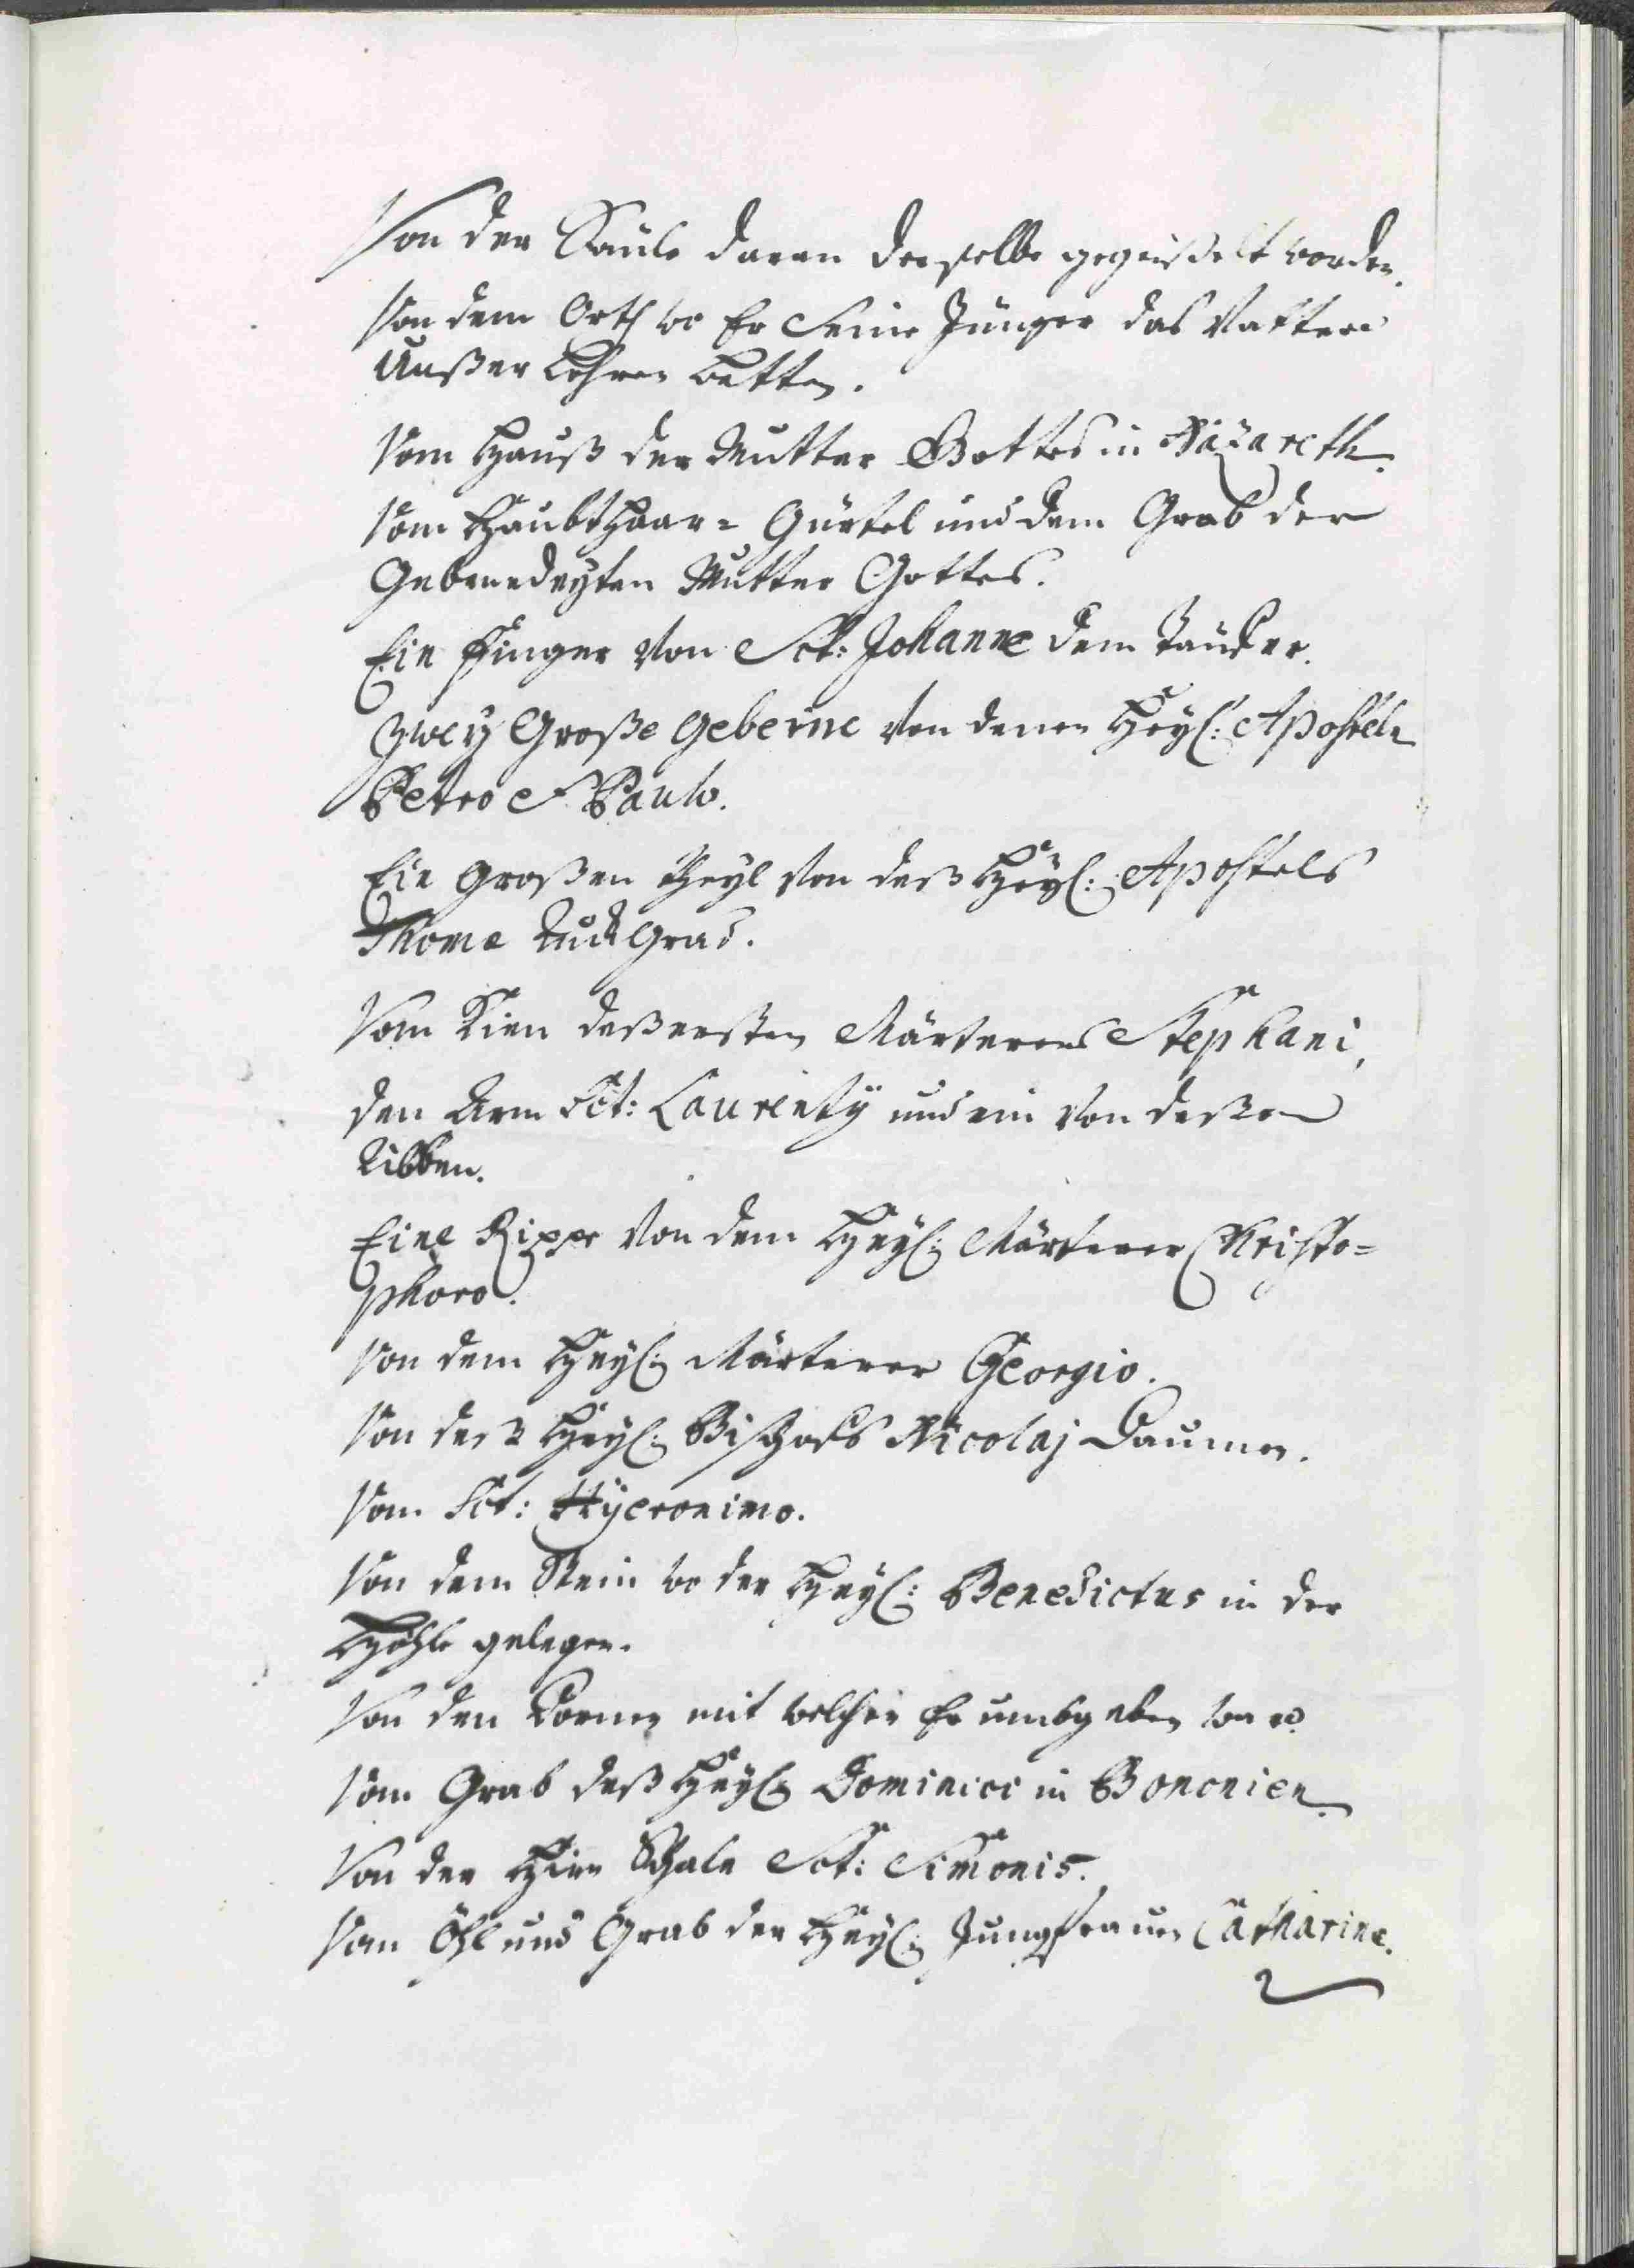 Von der Säule daran derselbe gegeißelt worden.
Von dem Orth wo Er Seine Jünger das Vatter
Unßer Lehren betten.
Vom Hauß der Mutter Gottes in Nazareth.
Vom Haubthaar= Gürtel und dem Grab der
Gebenedeyten Mutter Gottes.
Ein Finger von Sct: Johanne dem Taufer.
Zwey Große Gebeine von denen Heyl: Aposteln
Petro et Paulo.
Ein Großen theyl von deß Heyl: Apostels
Thomæ Ruckgrad.
Vom Kien deß ersten Märterers Stephani,
den Arm Sct: Laurentÿ und ein von deßen
Ribben.
Eine Rippe von dem Heyl: Märterer Christo=
phoro.
Von dem Heyl: Märterer Georgio.
Von deß Heyl: Bischofs Nicolaj Daumen.
Vom Sct: Hÿeronimo.
Von dem Stein wo der Heyl: Benedictus in der
Höhle gelegen.
Von den Dornen mit welchen Er umbgeben ward
Vom Grab deß Heyl: Dominici in Bononien.
Von der Hirn Schale Sct: Simonis.
Vom Öhl und Grab der Heyl: Jungfrauen Catharinæ.